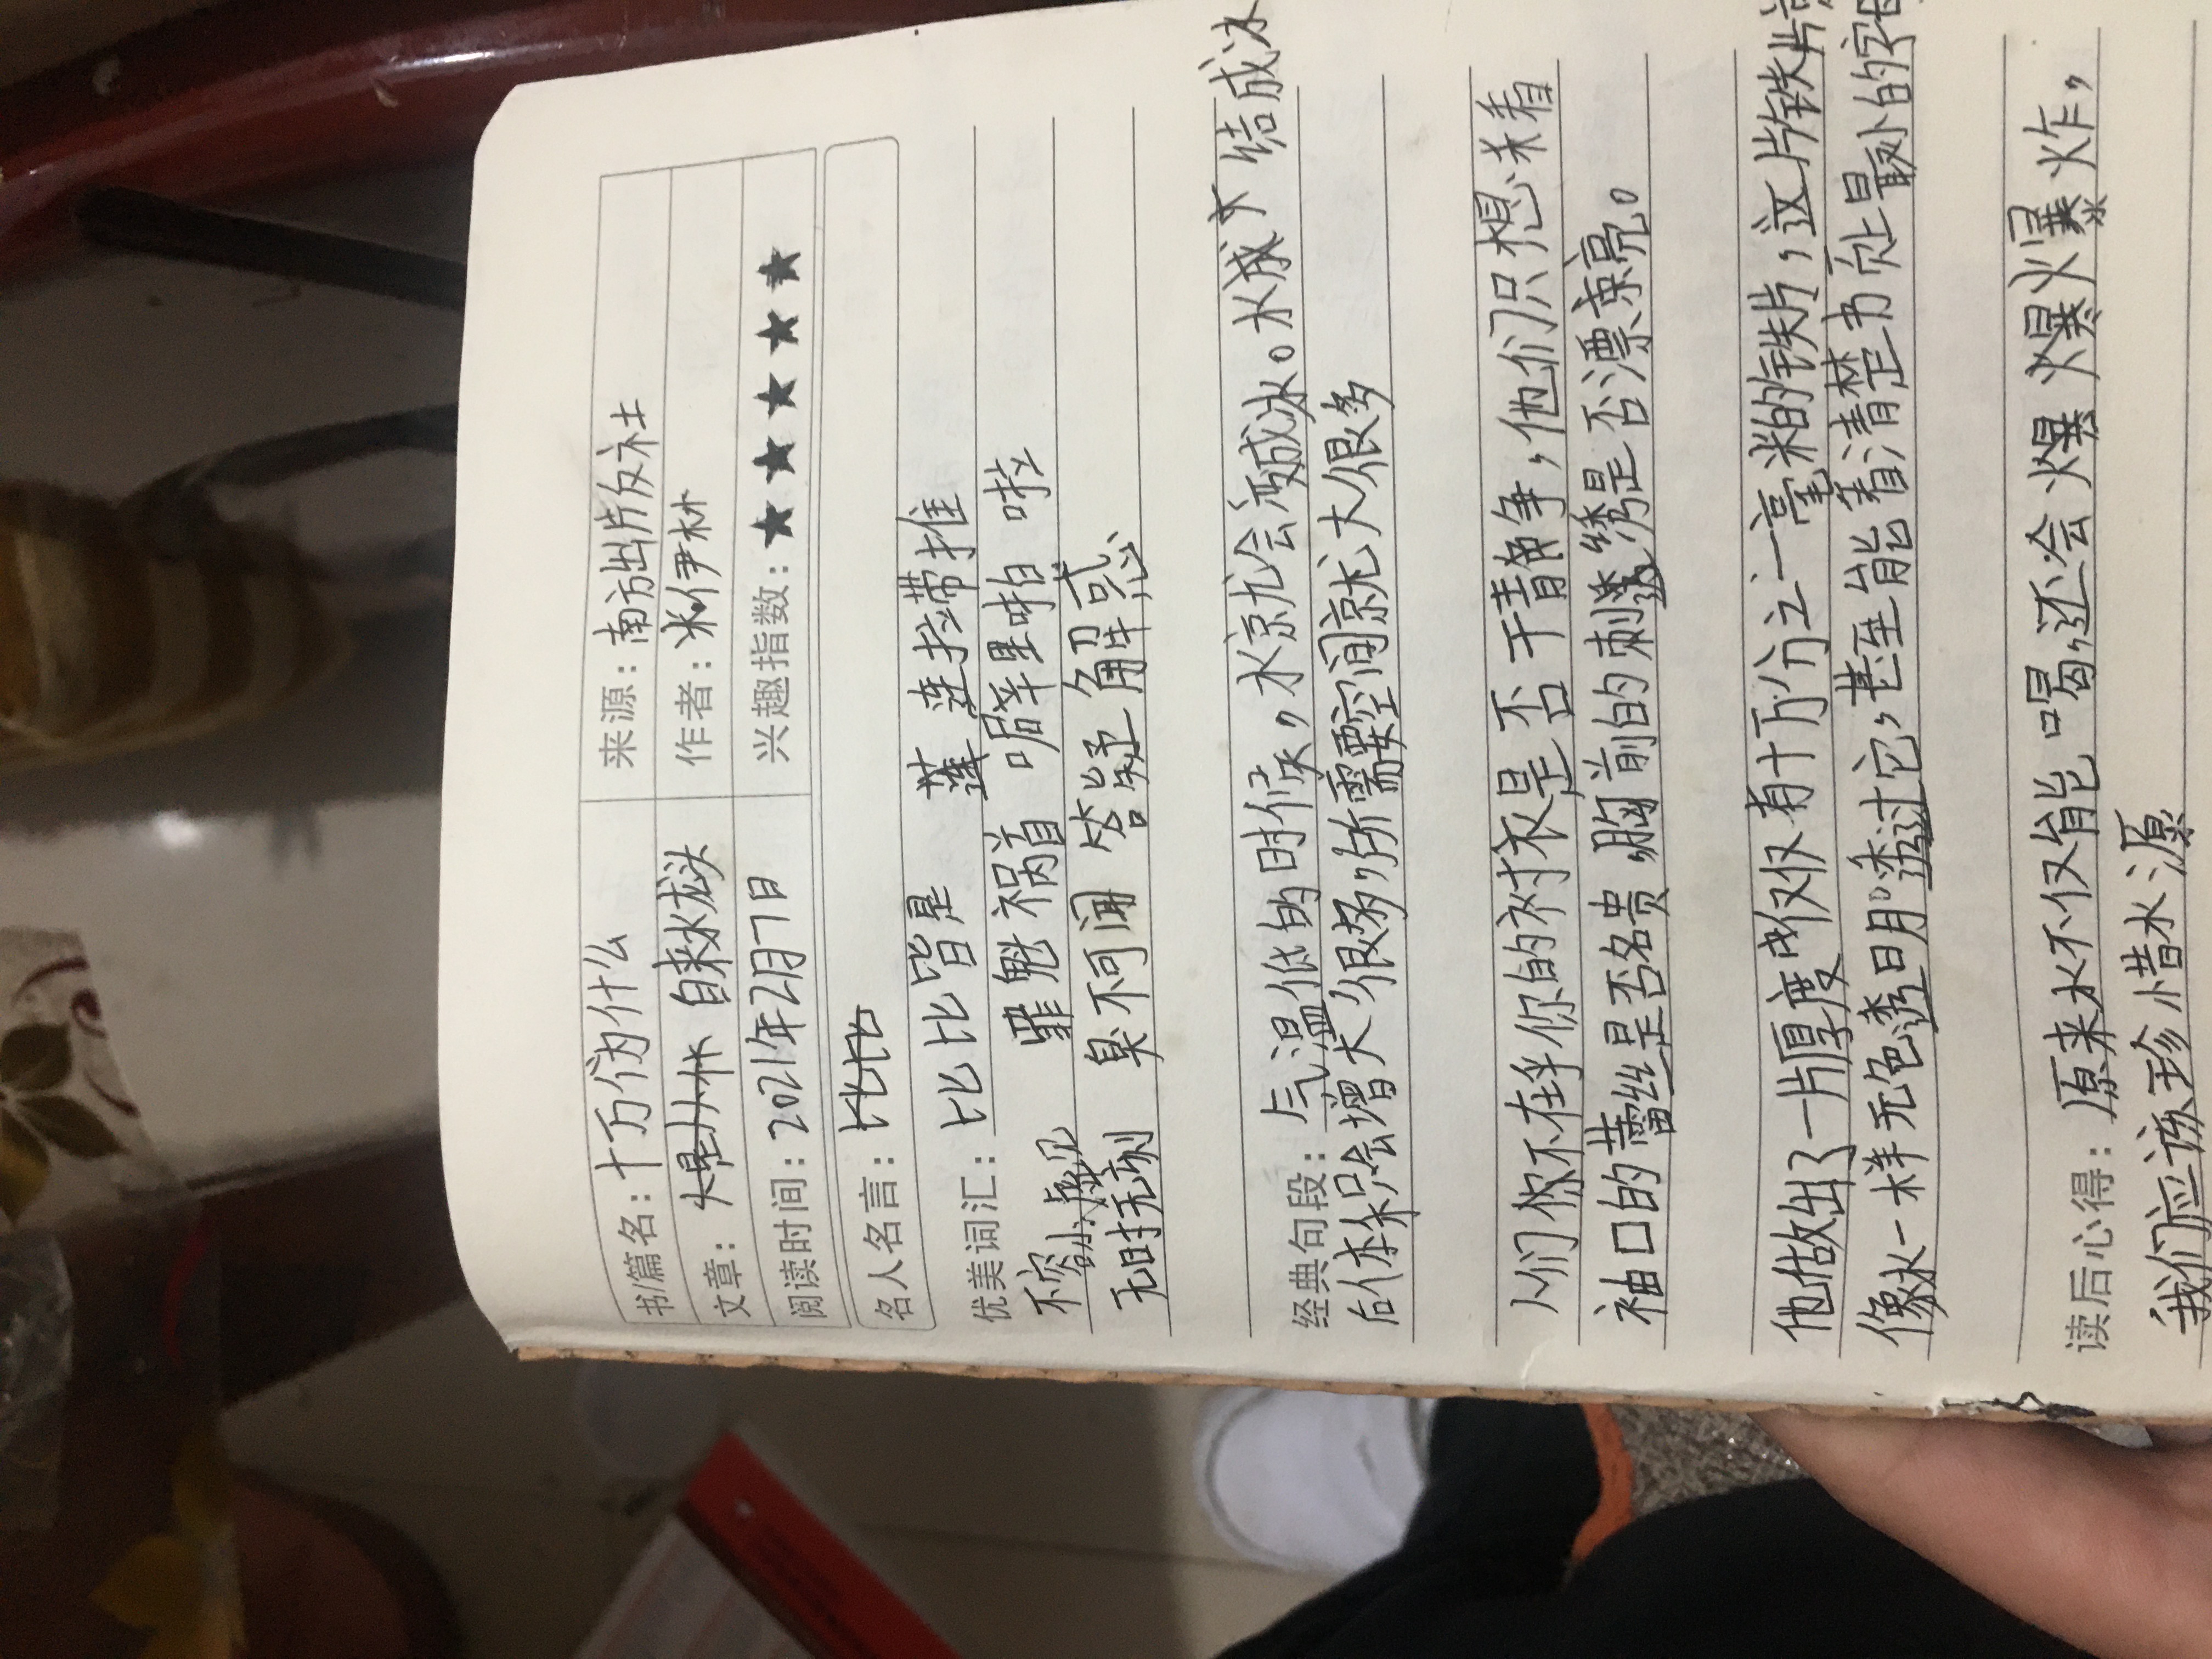 书/篇名：十万个为什么 来源：南方出片反社
文章：自来水龙头 作者：米·伊林
阅读时间：2021年2月7日 兴趣指数：★★★★★
名人名言：
优美词汇：比比皆是 连拉带推
不容小觑 罪魁祸首 噼里啪啦
无时无刻 臭不可闻 答疑解惑
经典句段：气温低的时候，水就会变成冰。水 结成冰
后体积会增大很多，所需要空间就大很多
人们不在乎你的衬衣是否干静，他们只想着
袖口的蕾丝是否名贵，胸前的刺绣是否漂亮。
他做出了一片厚度仅仅有十万分之一毫米的铁片，这片铁片
像水一样无色透明。透过它，甚至能看清楚书页上最小的字母
读后心得：原来水不仅能喝，还会爆炸，
我们应该珍惜水源